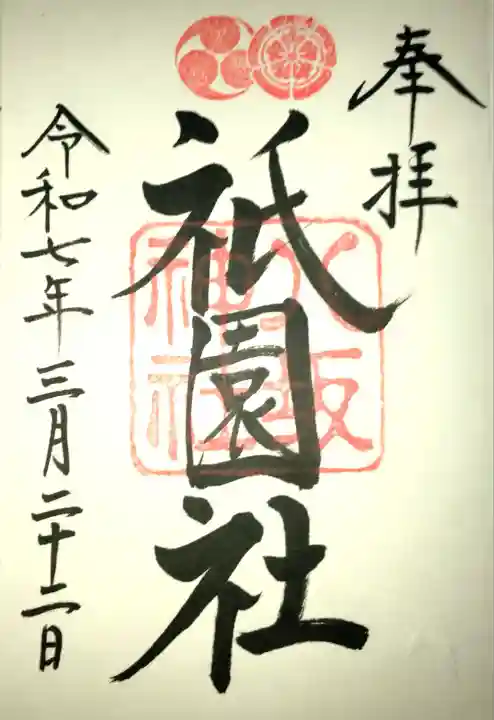 奉拝
祇園社
八坂神社
令和七年三月二十二日